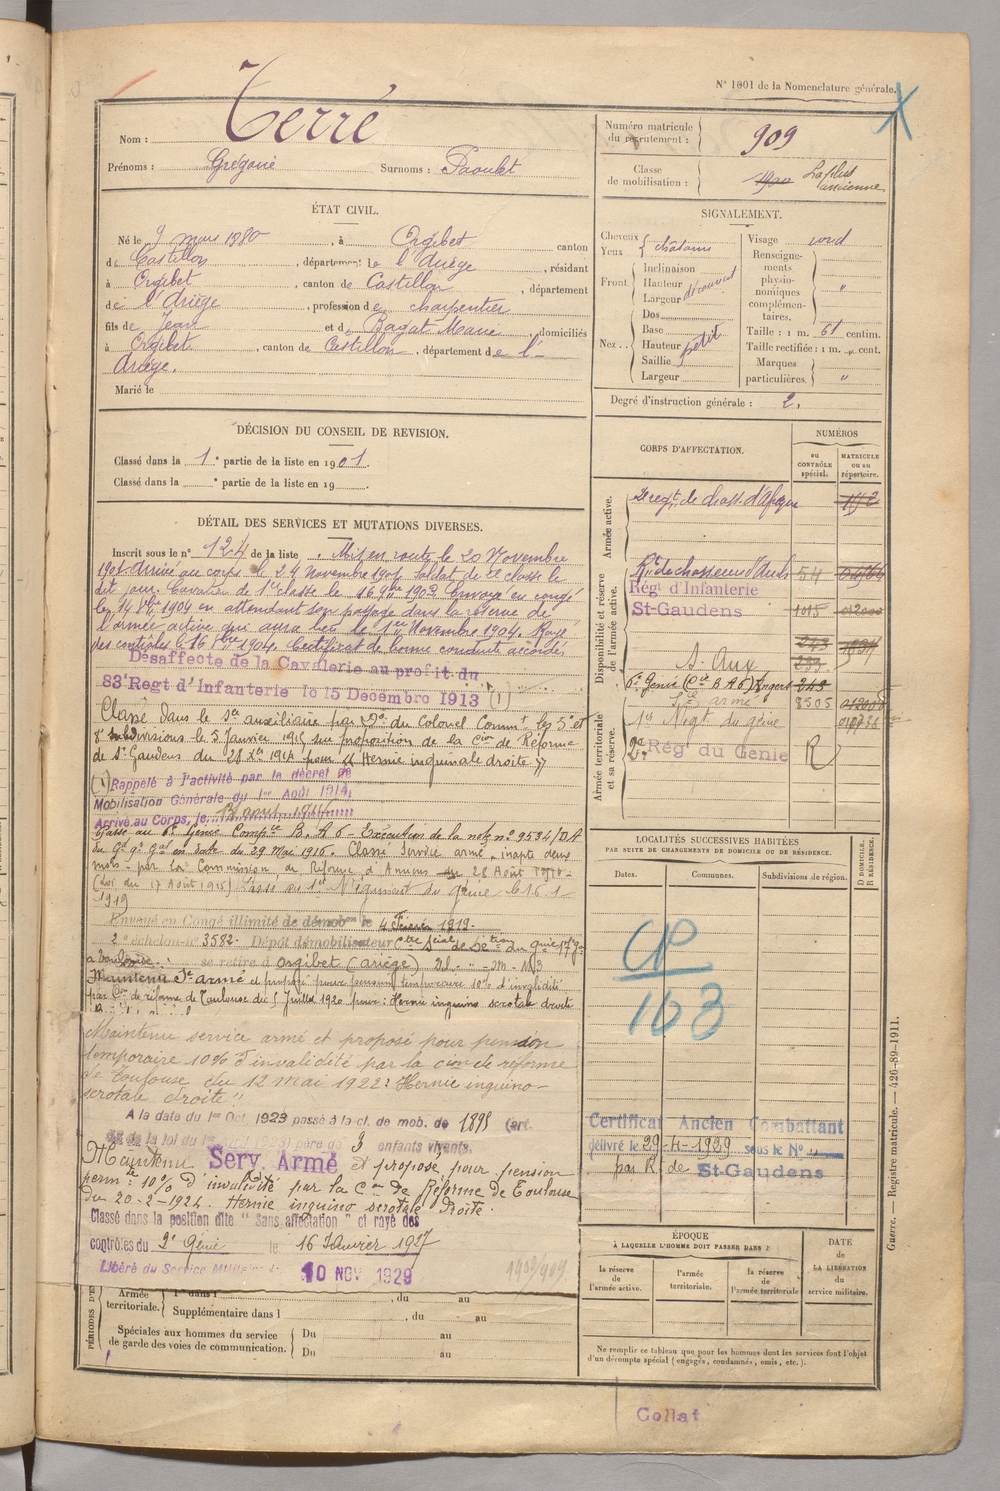 N° 1001 de la Nomenclature générale.
Nom : Terré
Prénoms : Grégoire Surnoms : Paoulet
Numéro matricule du recrutement : 909
Classe de mobilisation : 1900 La plus ancienne
ÉTAT CIVIL.
Né le 9 mars 1880, à Orgibet canton
de Castillon, département de l'Ariège, résidant
à Orgibet, canton de Castillon, département
de l'Ariège, profession de charpentier
fils de Jean et de Bagat Marie, domiciliés
à Orgibet, canton de Castillon, département de l'
Ariège.
Marié le
SIGNALEMENT.
Cheveux
Yeux châtains
Front. Inclinaison
Hauteur
Largeur découvert
Nez.. Dos
Base
Hauteur petit
Saillie
Largeur
Visage rond
Renseignements physionomiques complémentaires. "
Taille : 1 m. 61 centim.
Taille rectifiée : 1 m. " cent.
Marques particulières. "
Degré d'instruction générale : 2.
DÉCISION DU CONSEIL DE REVISION.
Classé dans la 1e partie de la liste en 1901.
Classé dans la e partie de la liste en 19
DÉTAIL DES SERVICES ET MUTATIONS DIVERSES.
Inscrit sous le n° 124 de la liste. Mis en route le 20 Novembre
1901. Arrivé au corps le 24 Novembre 1901. Soldat de 2e classe le
dit jour. Cavalier de 1re classe le 16 9bre 1903. Envoyé en congé
le 14 8bre 1904 en attendant son passage dans la réserve de
l'armée active qui aura lieu le 1er Novembre 1904. Rayé
des contrôles le 16 1904. Certificat de bonne conduite accordé.
Désaffecté de la Cavalerie au profit du
83e Regt d'Infanterie le 15 Décembre 1913 (1)
Classé dans le Sce auxiliaire par Don du Colonel Commt les 5e et
8e subdivisions le 5 janvier 1915 sur proposition de la Cion de Réforme
de St Gaudens du 28 Xbre 1914 pour "Hernie inguinale droite"
(1) Rappelé à l'activité par le décret de
Mobilisation Générale du 1er Août 1914,
Arrivé au Corps, le 13 août 1914
Passé au 6e Génie Compie B. A 6 - Exécution de la note n° 9534/DA
du Gd Qr Gal en date du 29 Mai 1916. Classé Service armé, inapte deux
mois par la Commission de Réforme d'Amiens du 28 Août
(Loi du 17 Août 1915) Passé au 1er Régiment du génie le 16 1
1919
Envoyé en Congé illimité de démobon le 4 Février 1919.
2e échelon n° 3582. Dépôt démobilisateur
à Toulouse. se retire à Orgibet (Ariège)
Maintenu Sce armé et proposé pour pension temporaire 10% d'invalidité
par Cion de réforme de Toulouse du 5 juillet 1920 pour : Hernie inguino scrotale droite
Maintenu service armé et proposé pour pension
temporaire 10% d'invalidité par la cion de réforme
de Toulouse du 12 mai 1922 : Hernie inguino-
scrotale droite"
A la date du 1er Oct 1923 passé à la cl. de mob. de 1895 (art.
de la loi du 1er Avril 1923) père de 3 enfants vivants.
Maintenu Serv. Armé et proposé pour pension
perm. 10% d'invalidité par la Con de Réforme de Toulouse
du 20-2-1924. Hernie inguino scrotale droite.
Classé dans la position dite "Sans affectation" et rayé des
contrôles du 2e Génie le 16 Janvier 1927
Libéré du Service Militaire le 10 NOV 1929
1900/909
PÉRIODES D'E
Armée territoriale. 1re dans l , du au
Supplémentaire dans l , du au
Spéciales aux hommes du service de garde des voies de communication. Du au
Du au
CORPS D'AFFECTATION.
NUMÉROS
au CONTRÔLE spécial.
MATRICULE ou au répertoire.
Armée active.
2e régt de chass. d'Afrique
Disponibilité et réserve de l'armée active.
Rt de chasseurs d'Auch 54
Régt d'Infanterie
St-Gaudens 1015 012000
243
S. Aux 233
6e Génie (Cie B A 6) Angers 243
Sce armé 8505
Armée territoriale et sa réserve.
1er Régt du génie
2e Rég. du Génie R
LOCALITÉS SUCCESSIVES HABITÉES
PAR SUITE DE CHANGEMENTS DE DOMICILE OU DE RÉSIDENCE.
Dates. Communes. Subdivisions de région. D DOMICILE. R RÉSIDENCE.
CP
163
Certificat Ancien Combattant
délivré le 29-4-1939 sous le N°
par R de St-Gaudens
ÉPOQUE
À LAQUELLE L'HOMME DOIT PASSER DANS :
la réserve de l'armée active.
l'armée territoriale.
la réserve de l'armée territoriale
DATE de LA LIBÉRATION du service militaire.
Ne remplir ce tableau que pour les hommes dont les services font l'objet
d'un décompte spécial (engagés, condamnés, omis, etc.).
Guerre. — Registre matricule. — 426-89-1911.
Collat